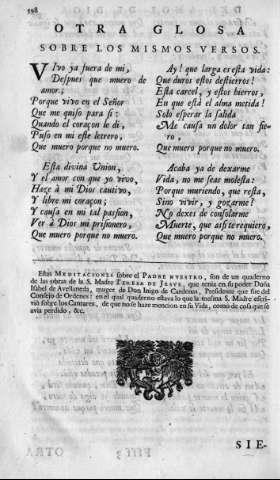 598
OTRA GLOSA
SOBRE LOS MISMOS VERSOS.
VIvo ya fuera de mi,
Despues que muero de
amor;
Porque vivo en el Señor
Que me quiso para si:
Quando el coraçon le di,
Puso en mi este letrero,
Que muero porque no muero.
Esta divina Union,
Y el amor con que yo vivo,
Haze à mi Dios cautivo,
Y libre mi coraçon;
Y causa en mi tal passion,
Ver à Dios mi prisionero,
Que muero porque no muero.
Ay! que larga es esta vida:
Que duros estos destierros!
Esta carcel, y estos hierros,
En que està el alma metida!
Solo esperar la salida
Me causa un dolor tan fie-
ro,
Que muero porque no muero.
Acaba ya de dexarme
Vida, no me seas molesta:
Porque muriendo, que resta,
Sino vivir, y gozarme?
No dexes de consolarme
Muerte, que ansi te requiero,
Que muero porque no muero.
Estas MEDITACIONES sobre el PADRE NUESTRO, son de un quaderno
de las obras de la S. Madre TERESA DE JESUS, que tenia en su poder Doña
Isabel de Avellaneda, muger de Don Inigo de Cardenas, Presidente que fue del
Consejo de Ordenes: en el qual quaderno estava lo que la mesma S. Madre escri-
viò sobre los Cantares, de que no se haze mencion en su Vida, como de cosa que se
avia perdido, &c.
SIE-